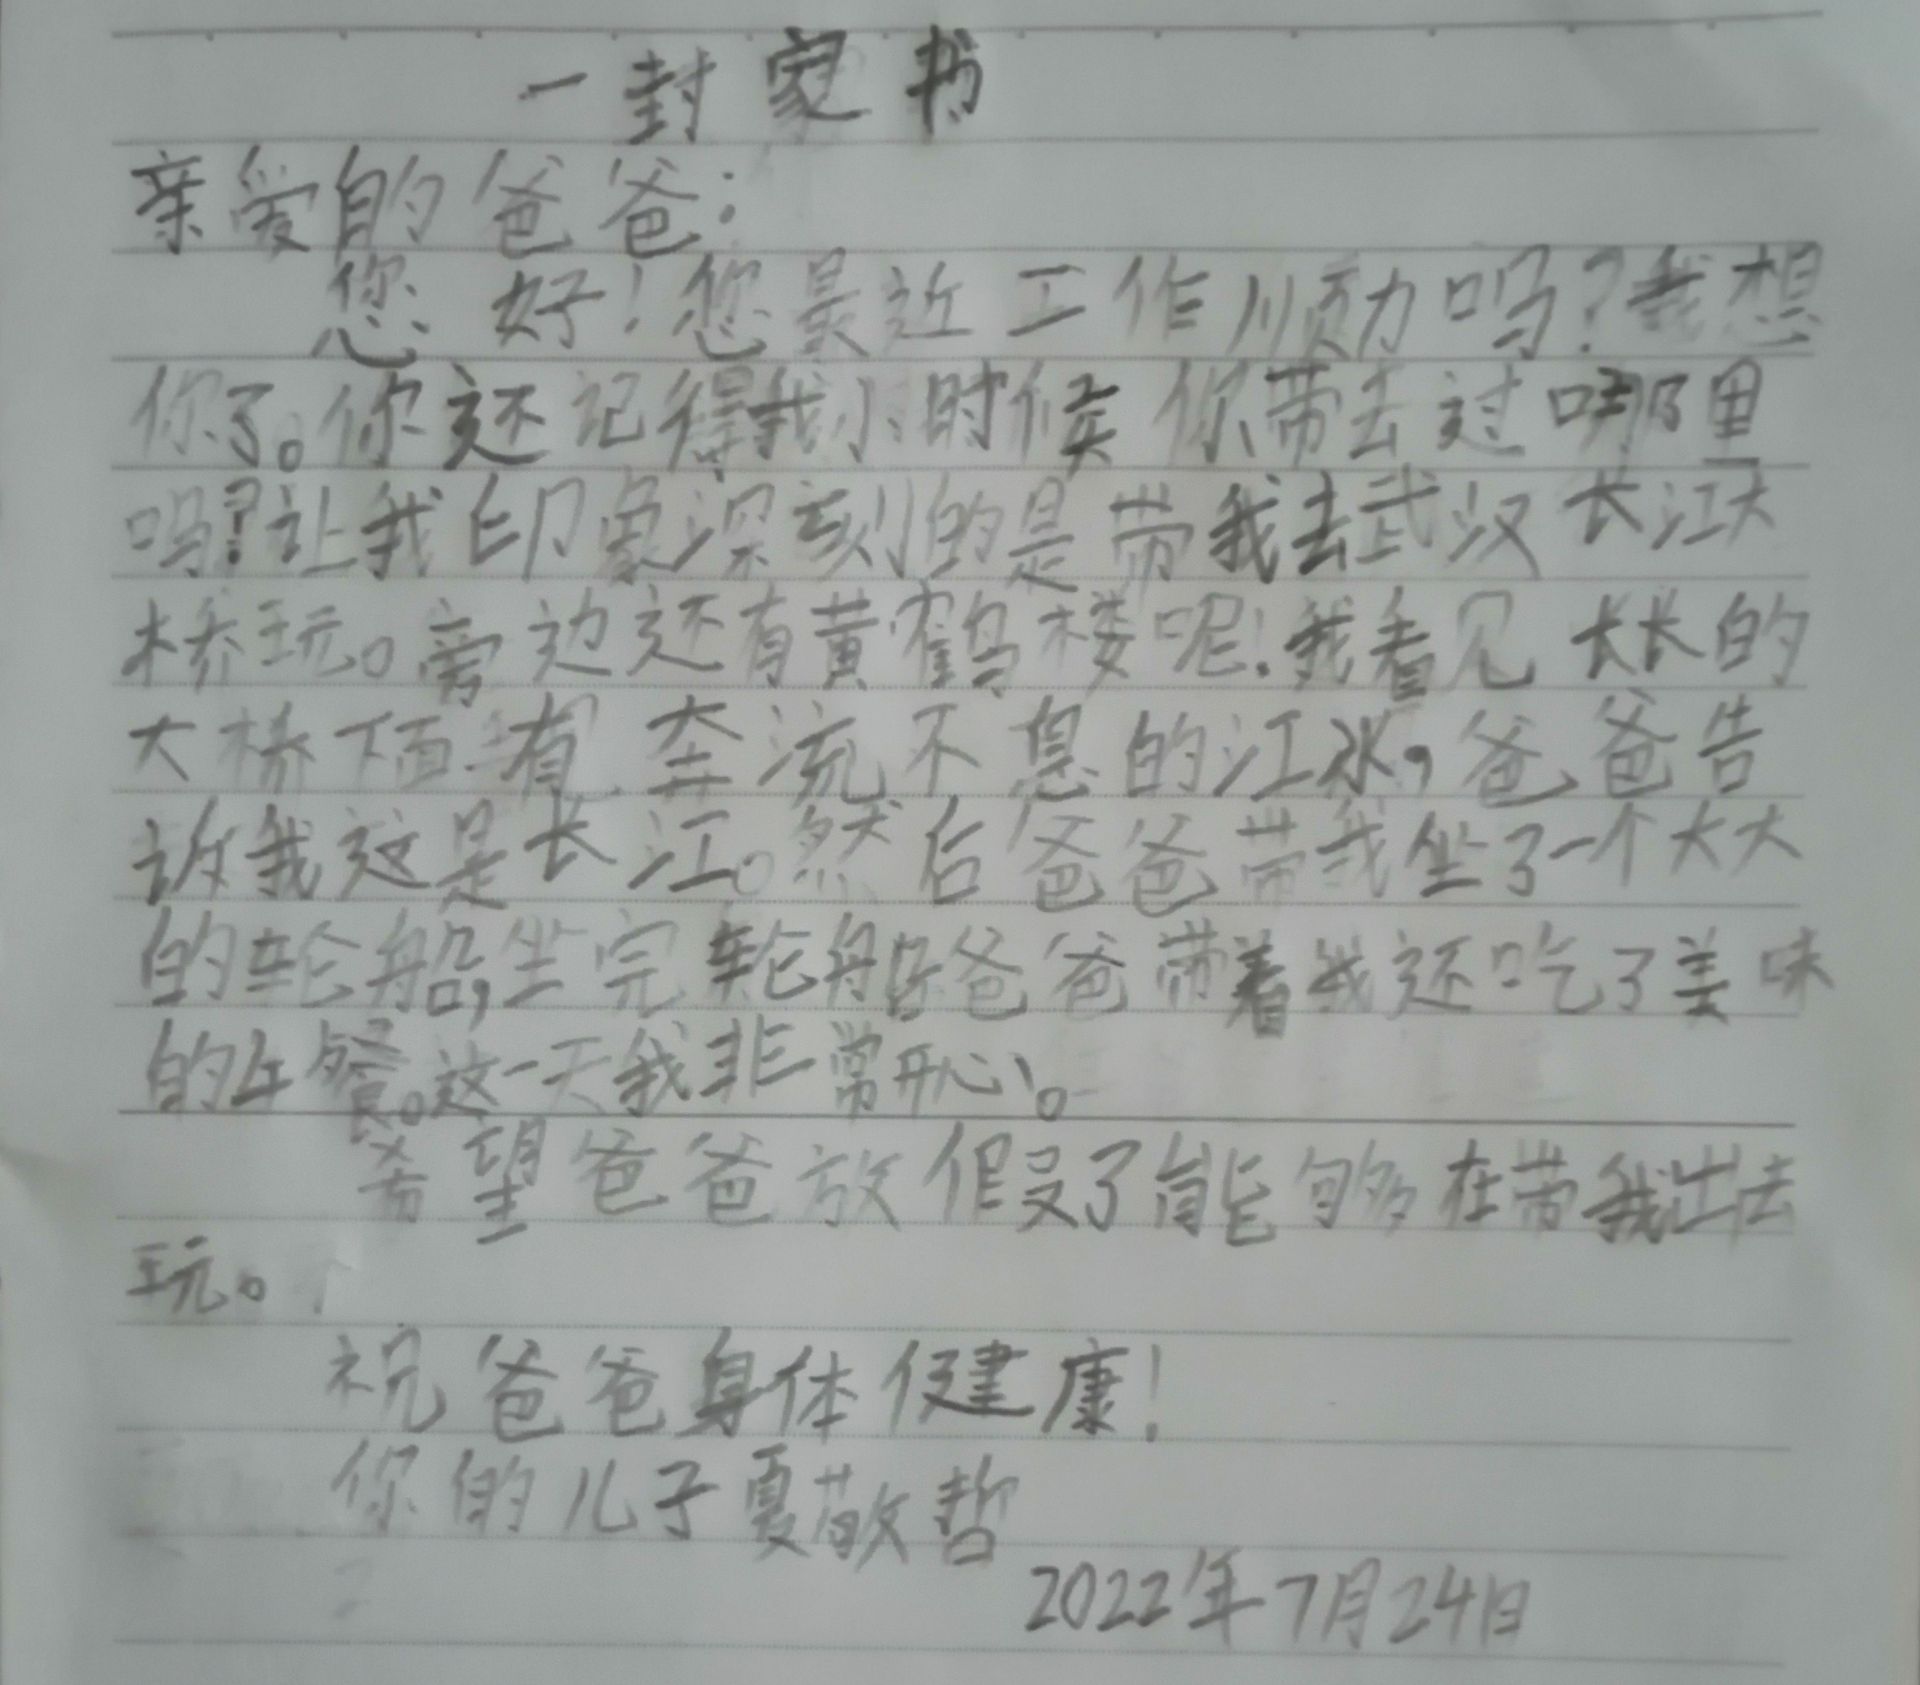 一封家书
亲爱的爸爸：
您好！您最近工作顺力吗？我想
你了。你还记得我小时候你带去过哪里
吗？让我印象深刻的是带我去武汉长江大
桥玩。旁边还有黄鹤楼呢！我看见长长的
大桥下面有奔流不息的江水，爸爸告
诉我这是长江。然后爸爸带我坐了一个大大
的轮船，坐完轮船爸爸带着我还吃了美味
的午餐。这一天我非常开心。
希望爸爸放假了能够在带我出去
玩。
祝爸爸身体健康！
你的儿子夏敬哲
2022年7月24日